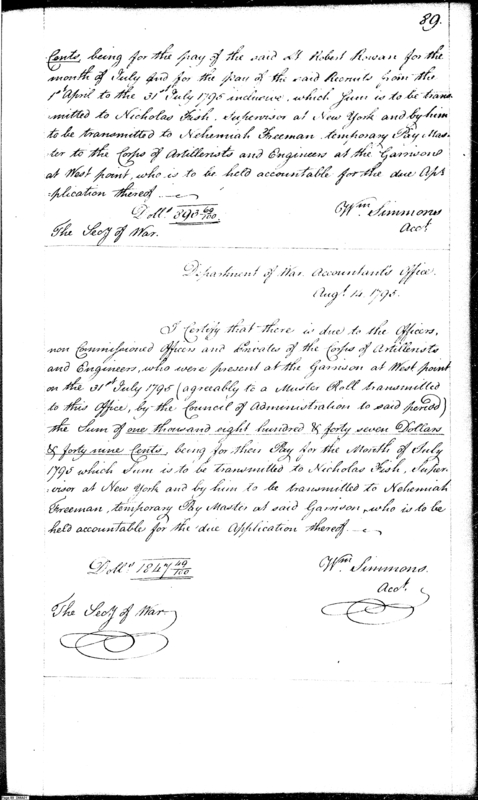 89.
Cents, being for the pay of the said Lt Robert Rowan for the
month of July and for the pay of the said Recruits from the
1st April to the 31st July 1795 inclusive, which Sum is to be trans-
mitted to Nicholas Fish, Supervisor at New York and by him
to be transmitted to Nehemiah Freeman temporary Pay Mas-
ter to the Corps of Artillerists and Engineers at the Garrison
at West point, who is to be held accountable for the due Ap-
plication thereof
Dolls 393 60/100
Wm Simmons
Acct.
The Secy of War.
Department of War Accountant's Office.
Augt. 14. 1795.
I Certify that there is due to the Officers,
non Commissioned Officers and Privates of the Corps of Artillerists
and Engineers, who were present at the Garrison at West point
on the 31st July 1795 (agreeably to a Muster Roll transmitted
to this Office, by the Council of Administration to said period)
the Sum of one thousand eight hundred & forty seven Dollars
& forty nine Cents, being for their Pay for the Month of July
1795 which Sum is to be transmitted to Nicholas Fish, Super-
visor at New York and by him to be transmitted to Nehemiah
Freeman, temporary Pay Master at said Garrison, who is to be
held accountable for the due Application thereof
Dolls 1847 49/100
Wm. Simmons.
Acct.
The Secy of War